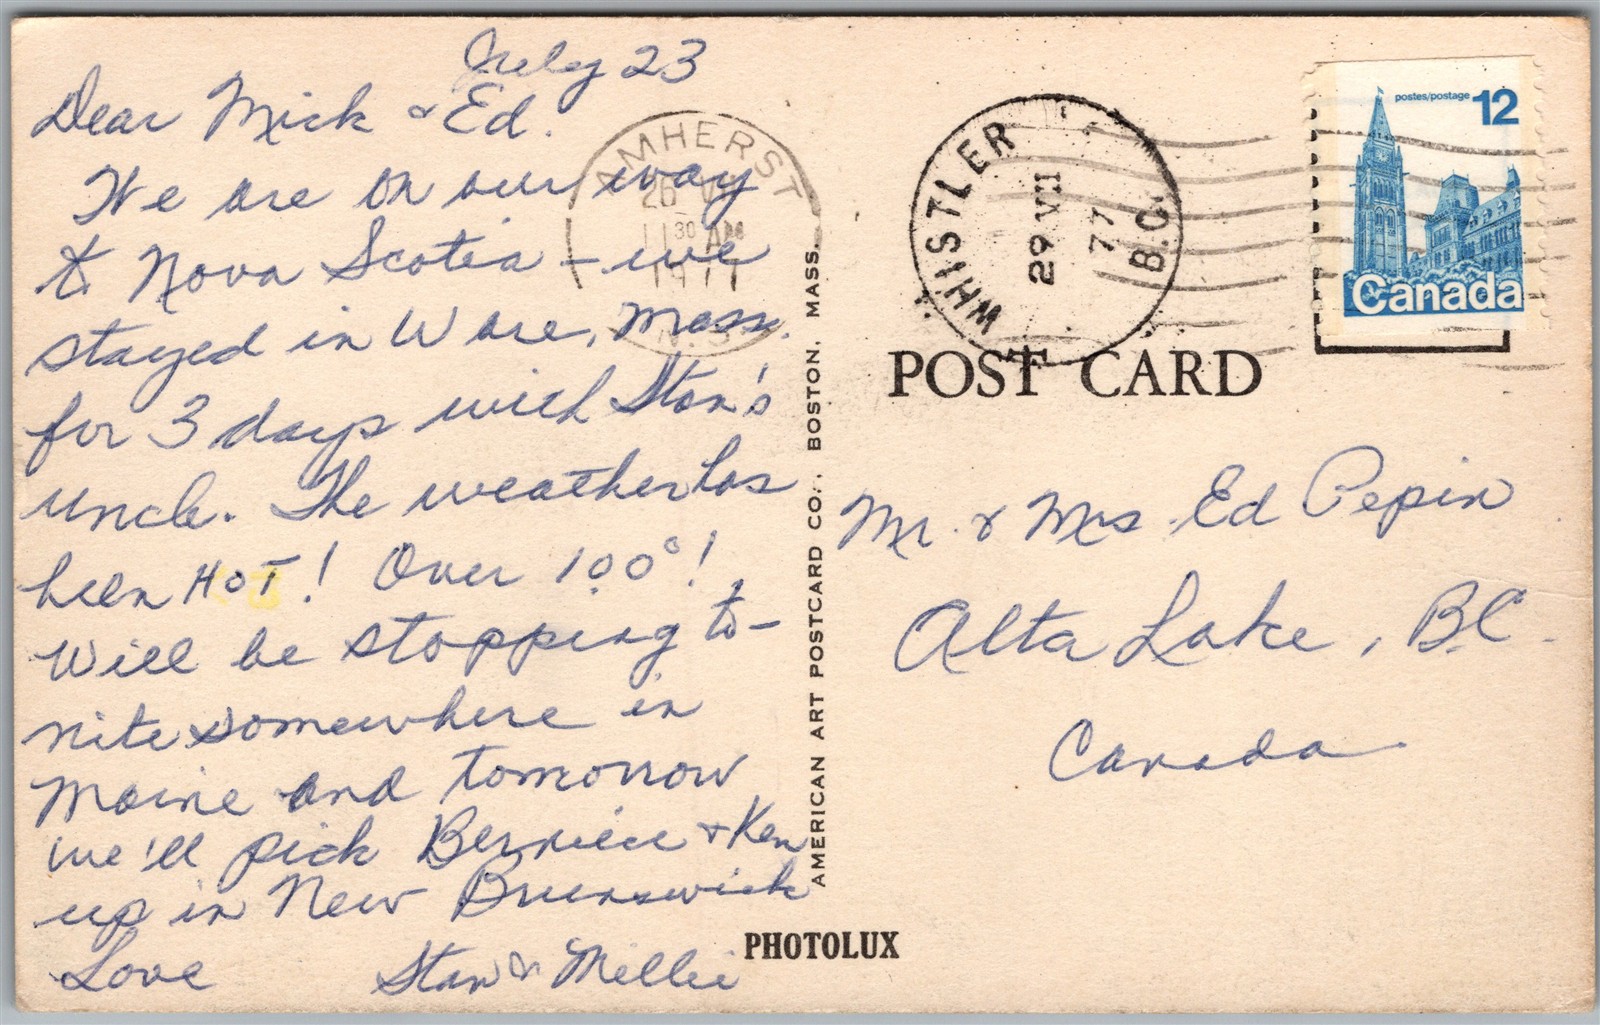 July 23
Dear Mick & Ed.
We are on our way
to Nova Scotia - we
stayed in Ware, Mass.
for 3 days with Stan's
uncle. The weather has
been HOT! Over 100°!
Will be stopping to-
nite somewhere in
Maine and tomorrow
we'll pick Berniece & Ken
up in New Brunswick
Love Stan & Millie
AMHERST
26 VII
11 30 AM
1977
N.S.
AMERICAN ART POSTCARD CO., BOSTON, MASS.
WHISTLER
29 VII
77
B.C.
postes/postage 12
Canada
POST CARD
Mr. & Mrs. Ed Pepin
Alta Lake, BC.
Canada
PHOTOLUX